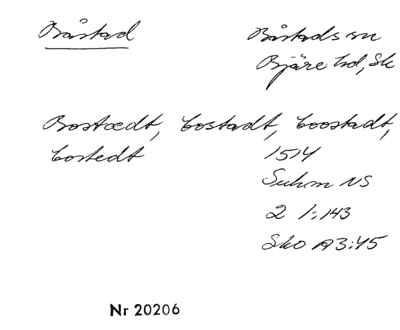 Båstad
Båstads sn
Bjäre hd, Sk
Bostædt, bostadt, boostadt,
bostedt
1514
Suhm NS
2 1:143
Sko A3:45
Nr 20206